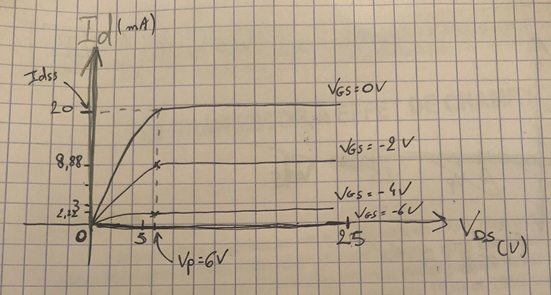 Id (mA)
Idss
20
VGS=0V
8,88
VGS=-2V
VGS=-4V
2,22
VGS=-6V
0
5
25
VDS (V)
Vp=6V